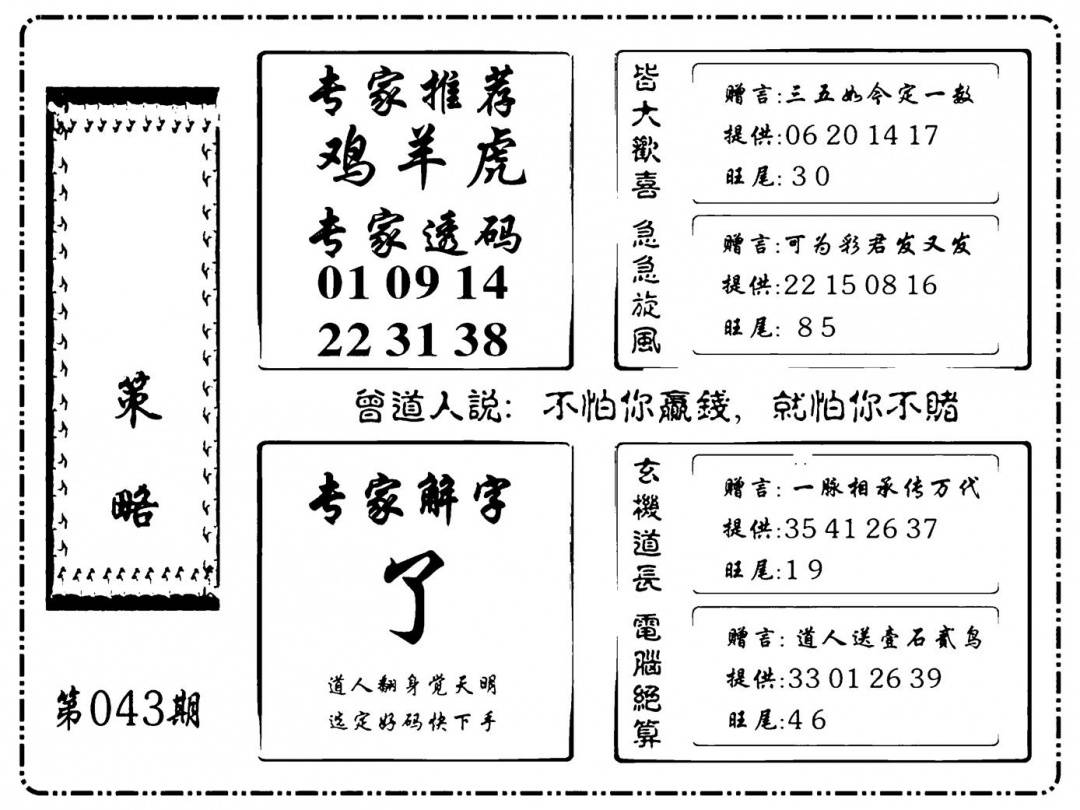 策略
第043期
专家推荐
鸡羊虎
专家透码
01 09 14
22 31 38
皆大歡喜
赠言:三五如今定一数
提供:06 20 14 17
旺尾:3 0
急急旋風
赠言:可为彩君发又发
提供:22 15 08 16
旺尾: 8 5
曾道人説: 不怕你贏錢, 就怕你不賭
专家解字
了
道人翻身觉天明
选定好码快下手
玄機道長
赠言: 一脉相承传万代
提供:35 41 26 37
旺尾:1 9
電腦絕算
赠言: 道人送壹石贰鸟
提供:33 01 26 39
旺尾:4 6